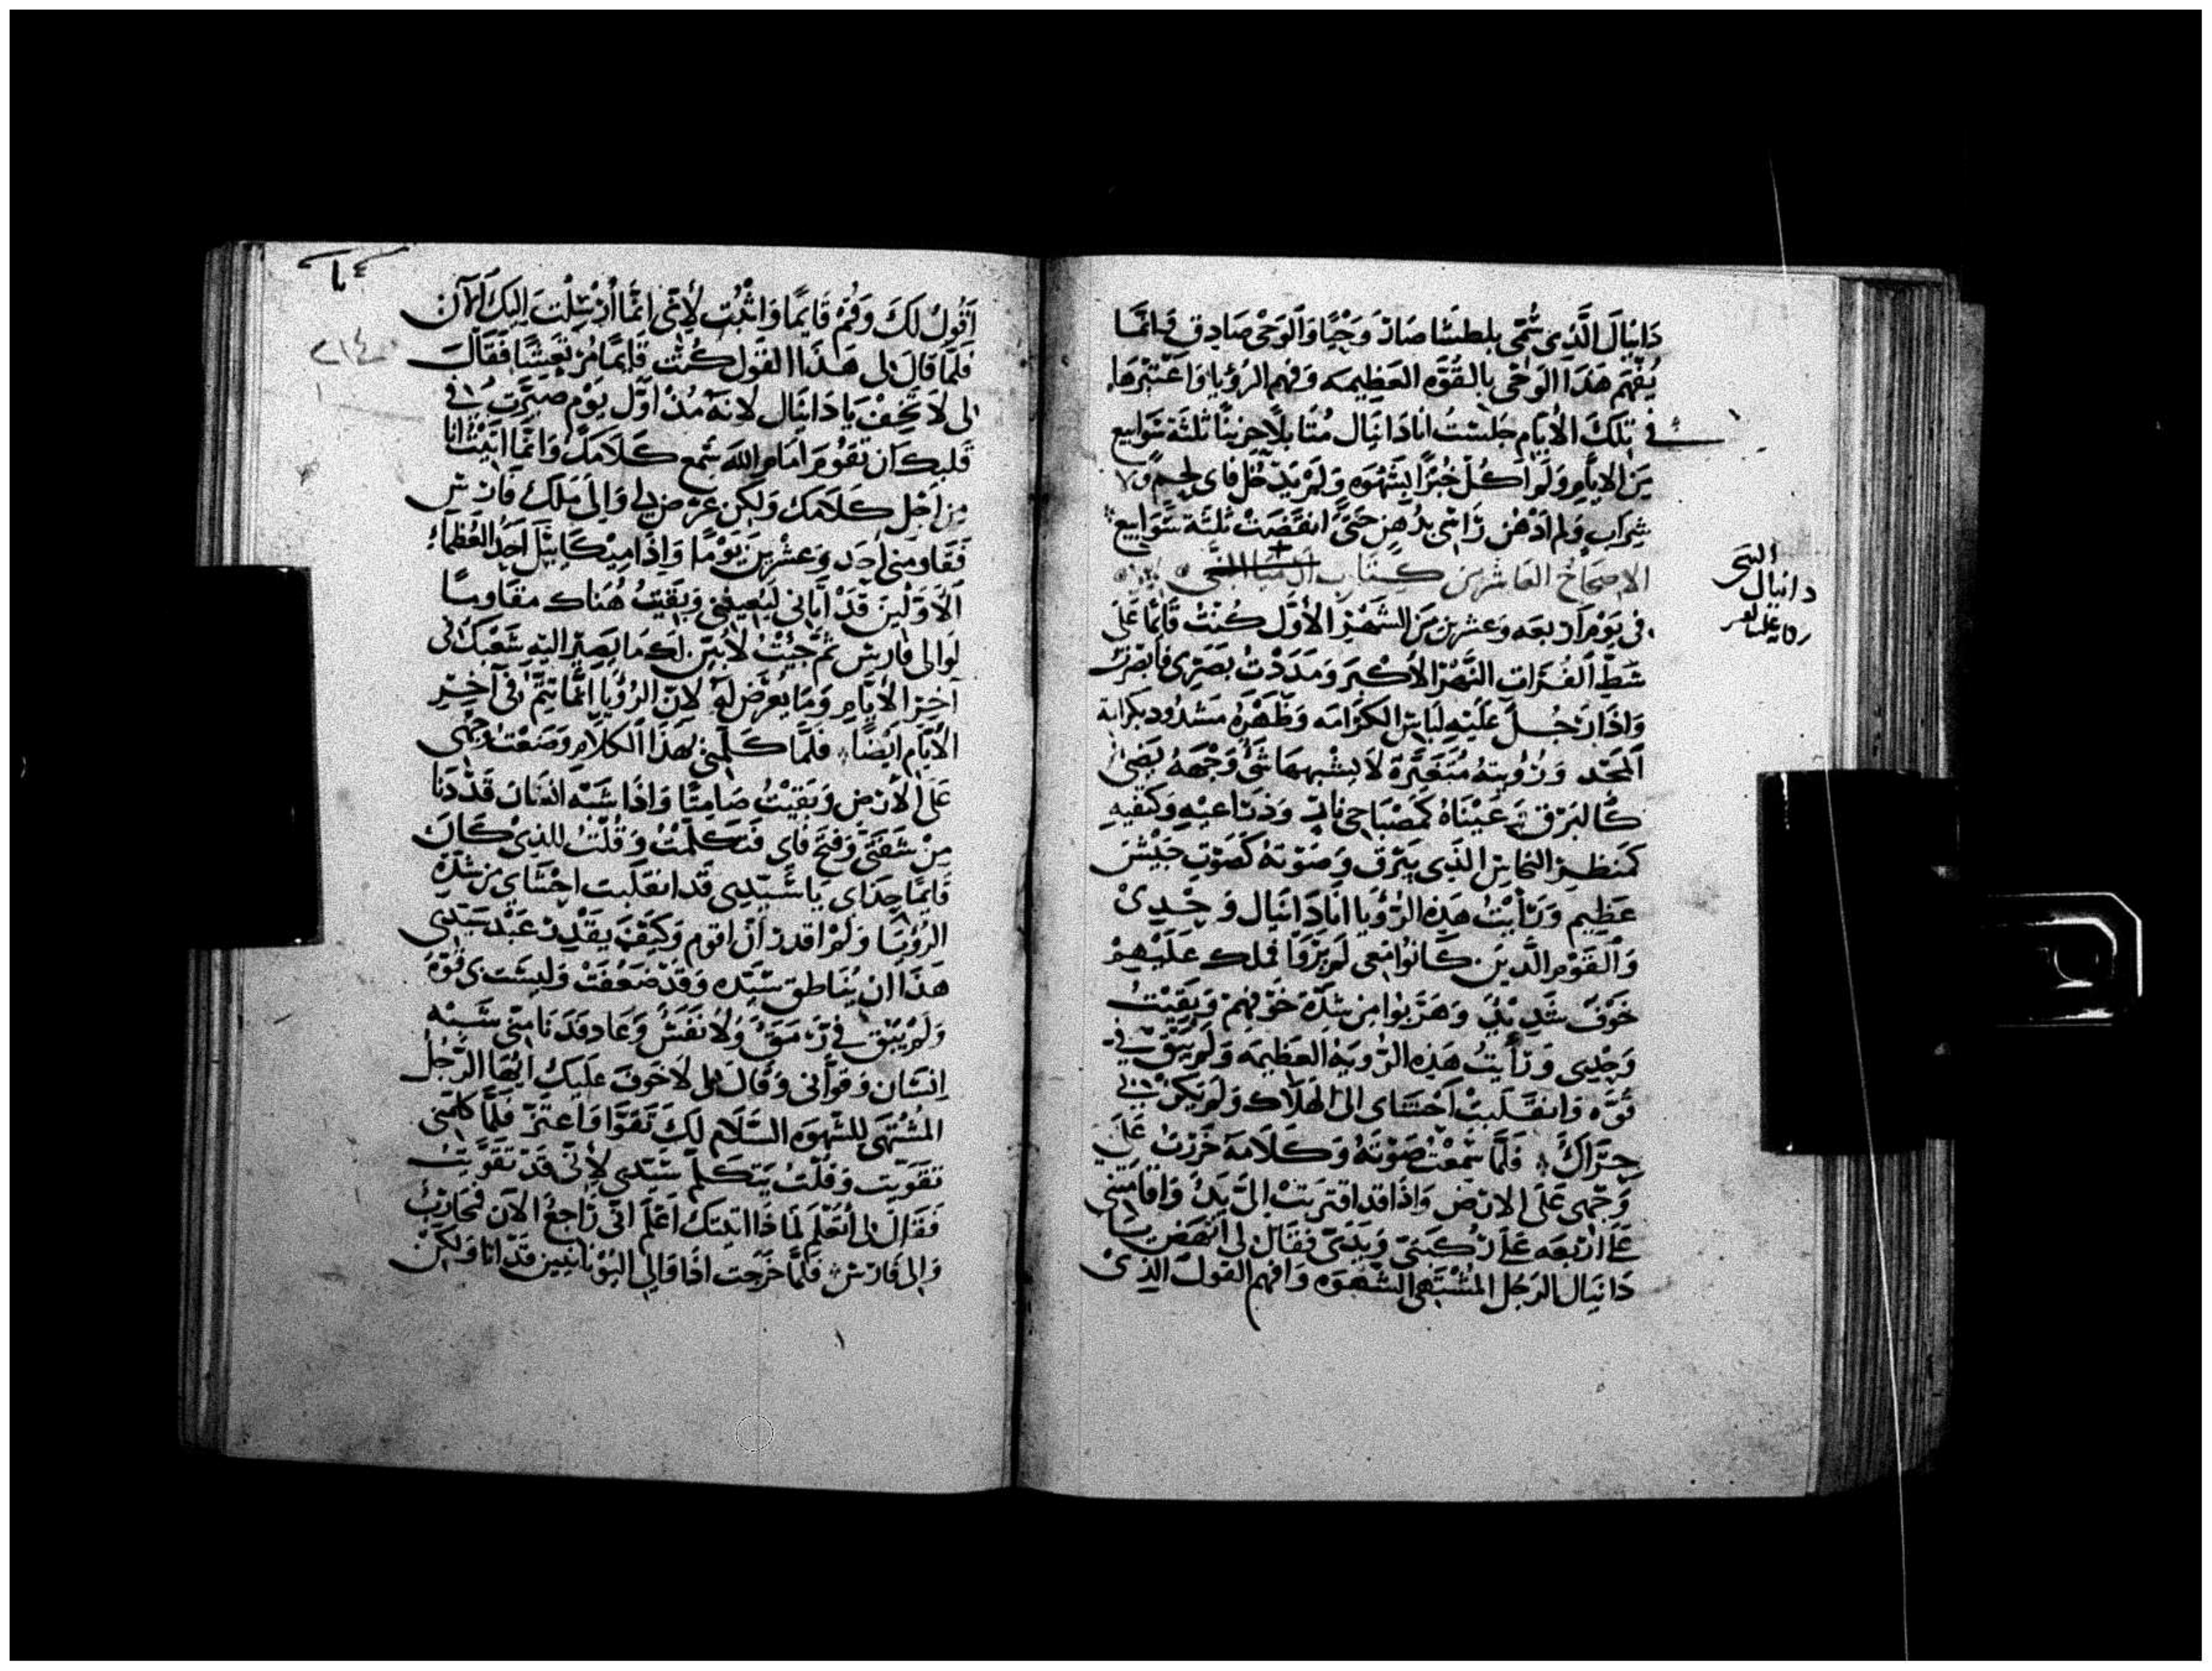 دَانِيَالَ الَّذِي سُمِّيَ بلطشا صَارَ وَحْيًا وَالوَحْى صَادِق فَانمَّا
يُفْهَم هَذَا الوَحْى بالقُوَّه العَظِيمَه وَفهم الرُؤيا وَاعْتبرها
في تِلكَ الأيام جَلستُ انا دَانيال مُتَابلاً حزينًا ثَلثَة سَوَابيع
مِن الايام وَلم اكُل خُبْزًا بِشَهْوَه وَلمْ يَدْخُل فاي لحِم وَلا
شِراب وَلم ادْهُن رَاسي بدُهن حَتَّى انقضَتْ ثَلثَة سَوَابيع
الاصحَاحُ العَاشر مِن كِتَاب
النبى
دانيال
في يَوْم اربعه وَعشرين مِن الشَهْر الأوَّل كُنتُ قَائمًا عَلى
شَطّ الفُرَات النَّهْر الأكْبر وَمَدَدْتُ بَصَري فابْصَرت
وَاذَا رَجُل عَليْهِ لبَاس الكَرَامَه وَظَهْرهُ مَشْدُود بكرَامة
المَجْد وَرُؤيتهُ مُتَغيّرة لا يشْبههَا شَئ وَجْههُ يُضئ
كَالبَرْق وَعَيْنَاهُ كَمصْبَاحي نار وَذرَاعيْهِ وَكتفيهِ
كَمنظر النحَاس الذي يَبْرق وَصَوْتهُ كَصَوْت جَيْش
عَظيم وَرَأيْتُ هَذِه الرُؤيا انا دَانيَال وَحْدِيْ
وَالقَوْم الَّذين كَانُوا مَعي لم يَرَوْا فملك عَليْهمْ
خَوْف شَدِيْدُ وَهَرَبوا مِن شِدَّة خَوْفهِمْ وَبَقيْتُ
وَحْدِي وَرَأيتُ هَذِه الرُويَه العَظيمَه وَلم يَبْق فيَّ
قُوَّه وَانقَلبتْ احْشَاى الى الهَلاك وَلم يَكنْ بي
حِرَاك فَلمَّا سَمعْتُ صَوْتهُ وَكَلامَهُ خَرَرْتُ عَلى
وَجْهى عَلى الارْض وَاذَا قد اقتربتْ اليَّ يَدُ وَاقامتني
عَلى ارْبعَه عَلى رُكبَتيَّ وَيَدَيَّ فقال لي انْهَض يَا
دَانيَال الرَجُل المُشْتَهى الشَهْوَه وَافهم القول الذِىْ
اقُولُ لكَ وَقُمْ قَايمًا وَاثْبُت لأنى انمَّا ارْسلْت اليْكَ الآن
فلمَّا قَالَ لى هَذَا القول كُنْت قَايمًا مُرْتَعِشًا فَقَالَ
لى لا تَخفْ يَا دَانيَال لانهُ مُنْذ اوَّل يَوْم صَيَّرتَ في
قَلبك ان تقوْم امَام الله سُمع كَلامكَ وَانمَّا اتيْتُ انا
مِن اجْل كلامك وَلكن عرَض لي وَالى مَلك فَارس
فَقَاومَني احَد وَعشْرين يَوْمًا وَاذَا ميْكَائيل احَد العُظمَاء
الأوّلين قدْ اتاني ليُعينَني وَبَقيتُ هُنَاك مقاومًا
لوالى فارس ثمّ جئتُ لأبيّن لك مَا يَصير اليهِ شَعْبكَ في
آخِر الأيام وَمَا يُعرَض لهُ لانّ الرُؤيا انمَّا تتمُّ في آخر
الأيام ايضًا فَلمَّا كلَّمني بهَذَا الكلام وَضَعْتُ وَجْهى
عَلى الأرْض وَبَقيْتُ صَامتًا وَاذَا شَبْه انسَان قَدْ دَنَا
مِنْ شَفَتيَّ وَفتحَ فَاى فَتَكَلَّمتُ وَقُلْتُ للذيْ كَانَ
قَايمًا حِذاي يَا سَيّدِي قَد انقلَبت احْشَاي مِن شِدَّة
الرُؤيَا وَلمْ اقدرْ ان اقوم وَكَيْفَ يَقْدِرْ عَبْد سَيّدِي
هَذَا ان يُنَاطق سَيّده وَقَدْ ضَعُفتُ وَليسَت لى قُوَّه
وَلم يَبْق فيّ رَمقُ وَلا نَفَسُ وَعَاد فَدَنا مِنّي شَبْه
انسَان وَقوَّاني وَقَالَ لي لا خَوف عَليْكَ ايُّهَا الرَجُل
المُشْتَهَى للشّهوَه السّلام لكَ تَقَوَّا وَاعْتزّ فَلمَّا كلمَني
تقوّيت وَقُلْتُ يَتَكلَّم سَيّدي لأني قَدْ تَقَوَّيْتُ
فَقَالَ لي أتعْلم لمَاذَا اتيتك اعْلم انّي رَاجعُ الآن فمحَاربُ
وَالى فَارس فَلمَّا خَرَجت اذا وَالى اليُوْنانيين قَدْ اتا وَلكنْ